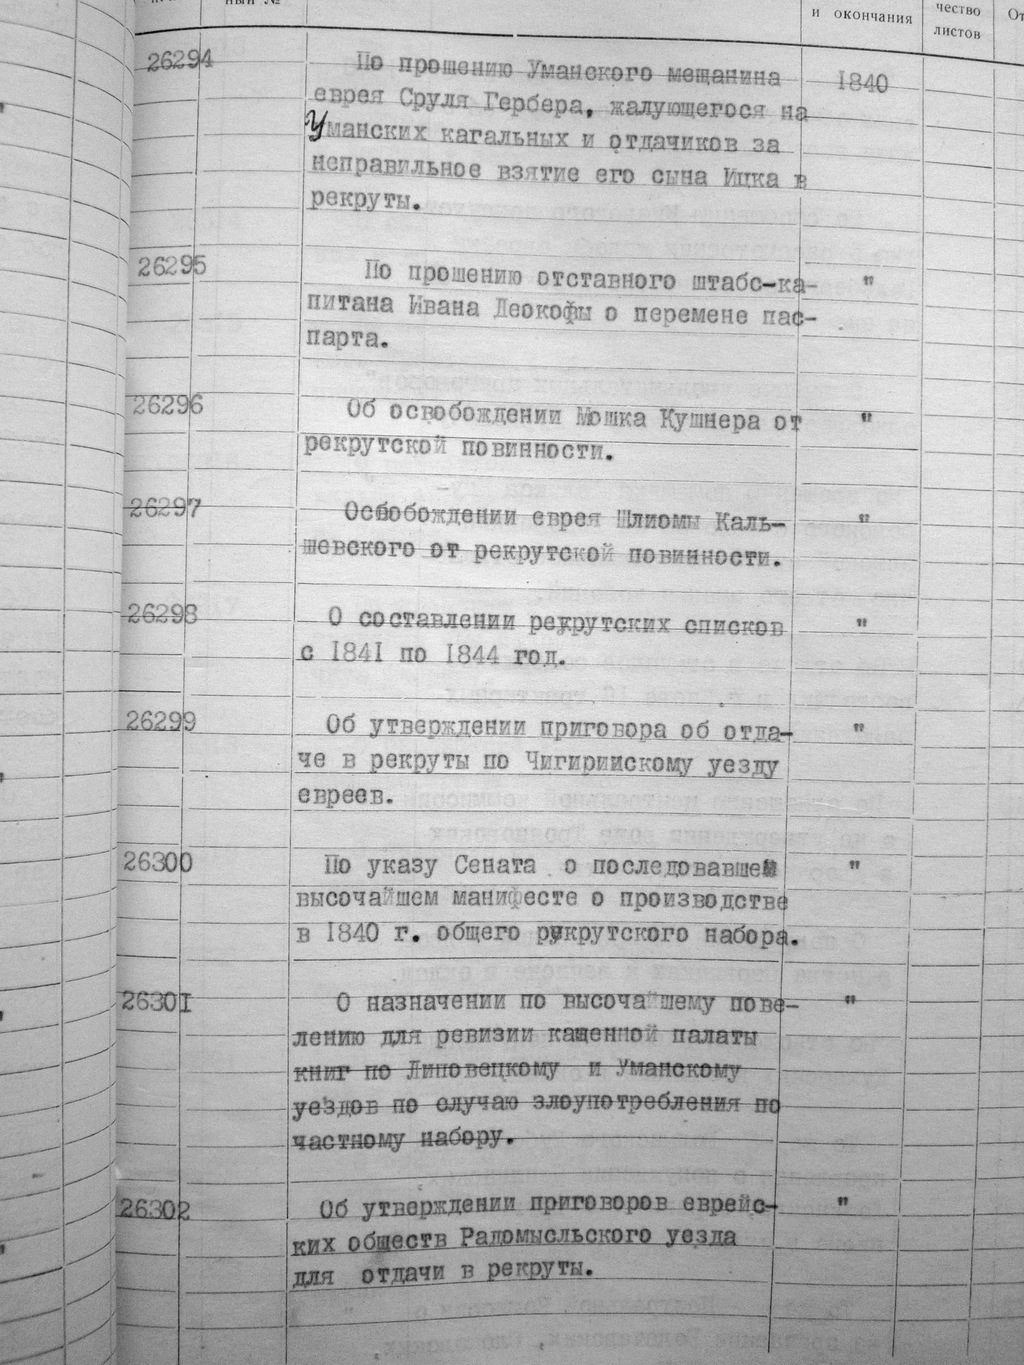 и окончания
чество
листов
От
26294
По прошению Уманского мещанина
1840
еврея Сруля Гербера, жалующегося на
Уманских кагальных и отдачиков за
неправильное взятие его сына Ицка в
рекруты.
26295
По прошению отставного штабс-ка-
"
питана Ивана Деокофы о перемене пас-
парта.
26296
Об освобождении Мошка Кушнера от
"
рекрутской повинности.
26297
Освобождении еврея Шлиомы Каль-
"
шевского от рекрутской повинности.
26298
О составлении рекрутских списков
"
с 1841 по 1844 год.
26299
Об утверждении приговора об отда-
"
че в рекруты по Чигириискому уезду
евреев.
26300
По указу Сената о последовавшем
"
высочайшем манифесте о производстве
в 1840 г. общего рукрутского набора.
26301
О назначении по высочайшему пове-
"
лению для ревизии кащенной палаты
книг по Липовецкому и Уманскому
уездов по случаю злоупотребления по
частному набору.
26302
Об утверждении приговоров еврейс-
"
ких обществ Радомысльского уезда
для отдачи в рекруты.